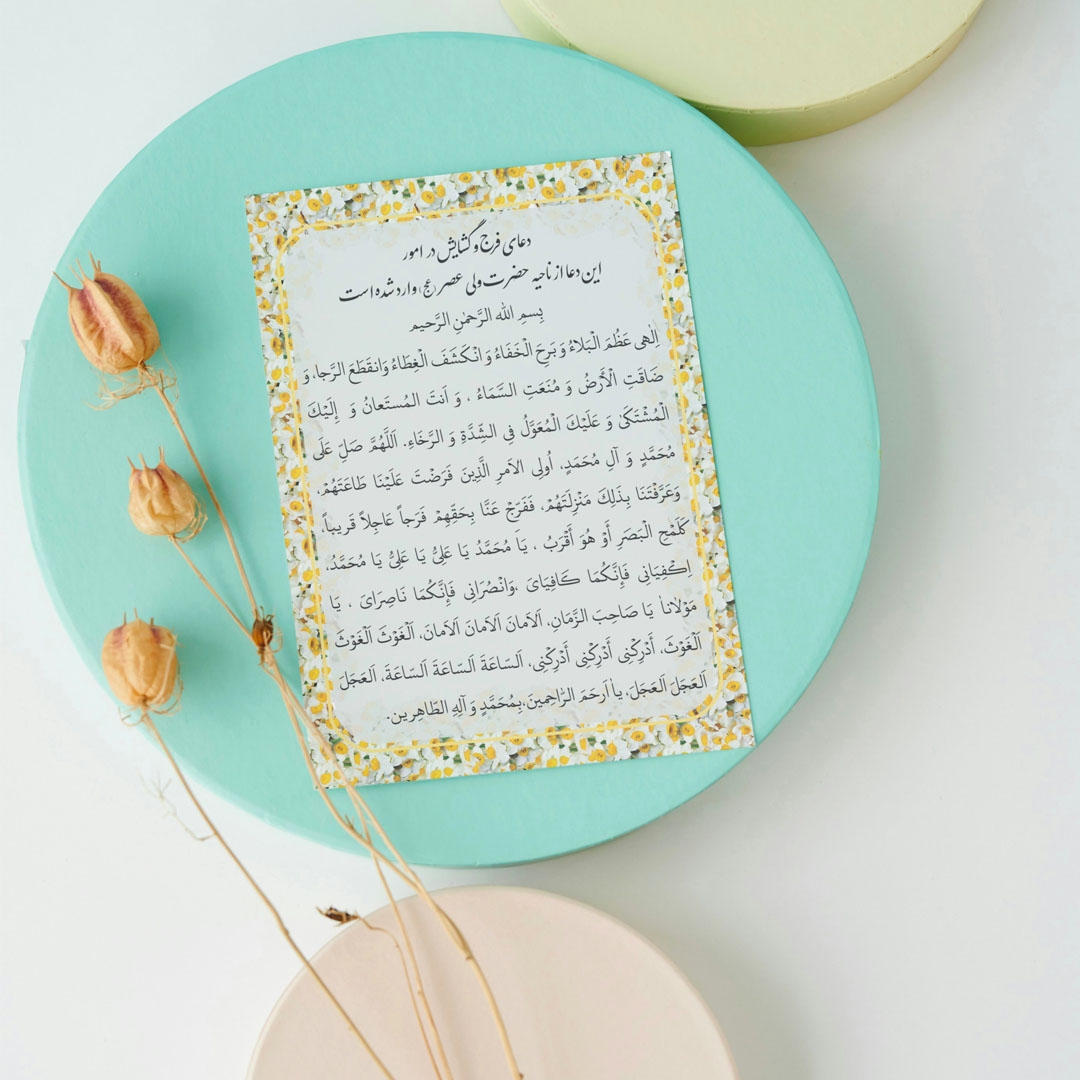 دعای فرج و گشایش در امور
این دعا از ناحیه حضرت ولی عصر (عج) وارد شده است
بِسمِ اللهِ الرَّحمٰنِ الرَّحیم
اِلٰهی عَظُمَ الْبَلاءُ وَ بَرِحَ الْخَفَاءُ وَ انْکَشَفَ الْغِطَاءُ وَانقَطَعَ الرَّجاءِ، وَ
ضَاقَتِ الْأَرْضُ وَ مُنَعَتِ السَّمَاءُ ، وَ اَنتَ المُستَعانُ وَ إِلَیْكَ
الْمُشْتَکَیٰ وَ عَلَیْكَ الْمُعَوَّلُ فِی الشِّدَّةِ وَ الرَّخَاءِ. اَللَّهُمَّ صَلِّ عَلَی
مُحَمَّدٍ وَ آلِ مُحَمَدٍ، اُولِی الاَمرِ الَّذِینَ فَرَضْتَ عَلَیْنَا طَاعَتَهُمْ،
وَعَرَّفْتَنَا بِذَلِكَ مَنْزِلَتَهُمْ، فَفَرِّجْ عَنَّا بِحَقِّهِمْ فَرَجاً عَاجِلاً قَریباً،
كَلَمْحِ الْبَصَرِ أَوْ هُوَ أَقْرَبُ ، یَا مُحَمَّدُ یَا عَلِیُّ یَا عَلِیُّ یَا مُحَمَّدُ،
اِکْفِیَانِی فَإِنَّکُمَا کَافِیَایَ ،وَانْصُرَانِی فَإِنَّکُمَا نَاصِرَایَ ، یَا
مَوْلَانا یَا صَاحِبَ الزَّمَانِ، اَلاَمانَ اَلاَمانَ اَلاَمانَ، اَلْغَوْثَ اَلْغَوْثَ
اَلْغَوْثَ، أَدْرِکْنِی أَدْرِکْنِی أَدْرِکْنِی، اَلسّاعَةَ اَلسّاعَةَ اَلسّاعَةَ، اَلعَجَلَ
اَلعَجَلَ اَلعَجَلَ، یا اَرحَمَ الرّاحِمینَ،بِمُحَمَّدٍ وَ آلِهِ الطّاهِرین.